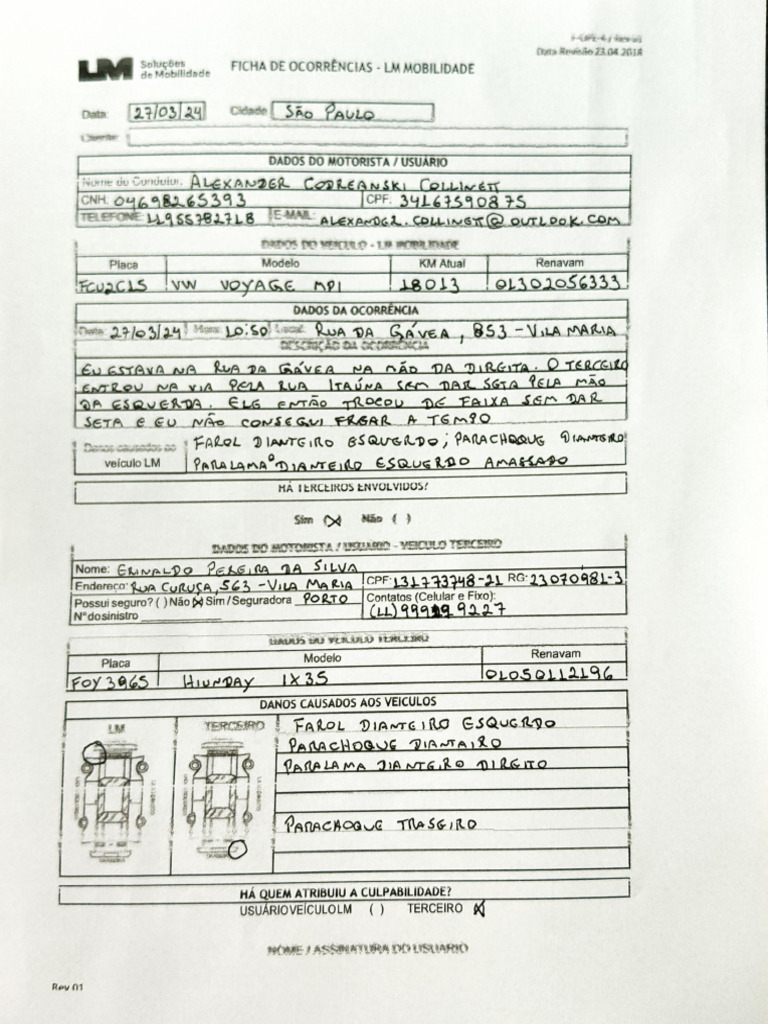 Data Revisão 23.04.2018
LM Soluções de Mobilidade
FICHA DE OCORRÊNCIAS - LM MOBILIDADE
Data: 27/03/24 Cidade SÃO PAULO
Cliente:
DADOS DO MOTORISTA / USUÁRIO
Nome do Condutor: ALEXANDER CODREANSKI COLLINETT
CNH: 04698265393 CPF: 34167590875
TELEFONE: 11955782718 E-MAIL: ALEXANDER.COLLINETT@OUTLOOK.COM
DADOS DO VEÍCULO - LM MOBILIDADE
Placa Modelo KM Atual Renavam
FCU2C15 VW VOYAGE MPI 18013 01302056333
DADOS DA OCORRÊNCIA
Data: 27/03/24 Hora: 10:50 Local: RUA DA GÁVEA, 853 - VILA MARIA
DESCRIÇÃO DA OCORRÊNCIA
EU ESTAVA NA RUA DA GÁVEA NA MÃO DA DIREITA. O TERCEIRO
ENTROU NA VIA PELA RUA ITAÚNA SEM DAR SETA PELA MÃO
DA ESQUERDA. ELE ENTÃO TROCOU DE FAIXA SEM DAR
SETA E EU NÃO CONSEGUI FREAR A TEMPO
Danos causados ao FAROL DIANTEIRO ESQUERDO; PARACHOQUE DIANTEIRO
veículo LM PARALAMA DIANTEIRO ESQUERDO AMASSADO
HÁ TERCEIROS ENVOLVIDOS?
Sim (X) Não ( )
DADOS DO MOTORISTA / USUÁRIO - VEICULO TERCEIRO
Nome: ERINALDO PEREIRA DA SILVA
Endereço: RUA CURUÇA, 563 - VILA MARIA CPF: 131773748-21 RG: 23070981-3
Possui seguro? ( ) Não (X) Sim / Seguradora PORTO Contatos (Celular e Fixo):
N° do sinistro (11) 9227
DADOS DO VEÍCULO TERCEIRO
Placa Modelo Renavam
FOY3965 HIUNDAY IX35 01050112196
DANOS CAUSADOS AOS VEICULOS
LM TERCEIRO FAROL DIANTEIRO ESQUERDO
PARACHOQUE DIANTAIRO
PARALAMA DIANTEIRO DIREITO
PARACHOQUE TRASEIRO
HÁ QUEM ATRIBUIU A CULPABILIDADE?
USUÁRIO VEÍCULO LM ( ) TERCEIRO (X)
NOME / ASSINATURA DO USUARIO
Rev 01